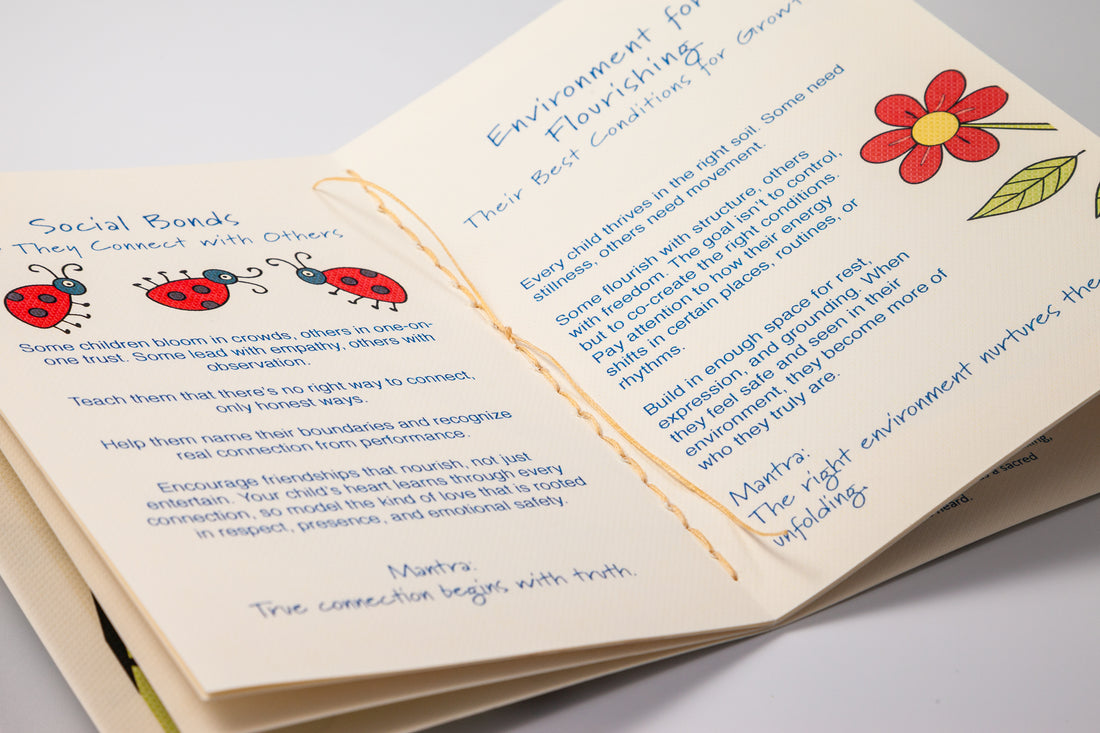 Social Bonds
They Connect with Others
Some children bloom in crowds, others in one-on-
one trust. Some lead with empathy, others with
observation.
Teach them that there's no right way to connect,
only honest ways.
Help them name their boundaries and recognize
real connection from performance.
Encourage friendships that nourish, not just
entertain. Your child's heart learns through every
connection, so model the kind of love that is rooted
in respect, presence, and emotional safety.
Mantra:
True connection begins with truth.
Environment for
Flourishing
Their Best Conditions for Growth
Every child thrives in the right soil. Some need
stillness, others need movement.
Some flourish with structure, others
with freedom. The goal isn't to control,
but to co-create the right conditions.
Pay attention to how their energy
shifts in certain places, routines, or
rhythms.
Build in enough space for rest,
expression, and grounding. When
they feel safe and seen in their
environment, they become more of
who they truly are.
Mantra:
The right environment nurtures the
unfolding.
a sacred
heard.